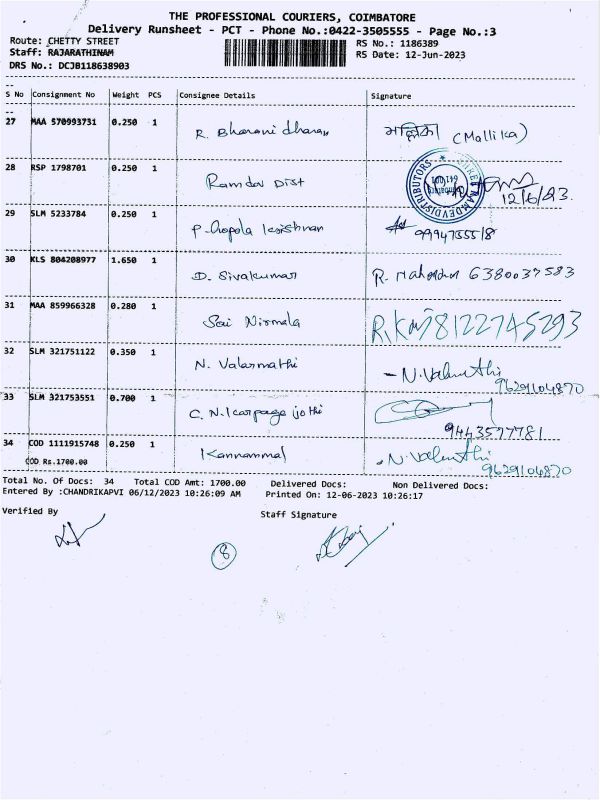 THE PROFESSIONAL COURIERS, COIMBATORE
Delivery Runsheet - PCT - Phone No.:0422-3505555 - Page No.:3
Route: CHETTY STREET
RS No.: 1186389
Staff: RAJARATHINAM
RS Date: 12-Jun-2023
DRS No.: DCJB118638903
S No Consignment No Weight PCS Consignee Details Signature
27 MAA 570993731 0.250 1 R. Bharani dharan (Mallika)
28 RSP 1798701 0.250 1 Ramdev Dist 12/6/23.
29 SLM 5233784 0.250 1 P. Gopala krishnan
30 KLS 804208977 1.650 1 D. Sivakumar R. 6380037583
31 MAA 859966328 0.280 1 Sai Nirmala 8122745293
32 SLM 321751122 0.350 1 N. Valarmathi - N. Valarmathi
9629104870
33 SLM 321753551 0.700 1 C. N. karpaga jothi
9443577781
34 COD 1111915748 0.250 1 Kannammal N. Valarmathi
COD Rs.1700.00 9629104870
Total No. Of Docs: 34 Total COD Amt: 1700.00 Delivered Docs: Non Delivered Docs:
Entered By :CHANDRIKAPVI 06/12/2023 10:26:09 AM Printed On: 12-06-2023 10:26:17
Verified By Staff Signature
8